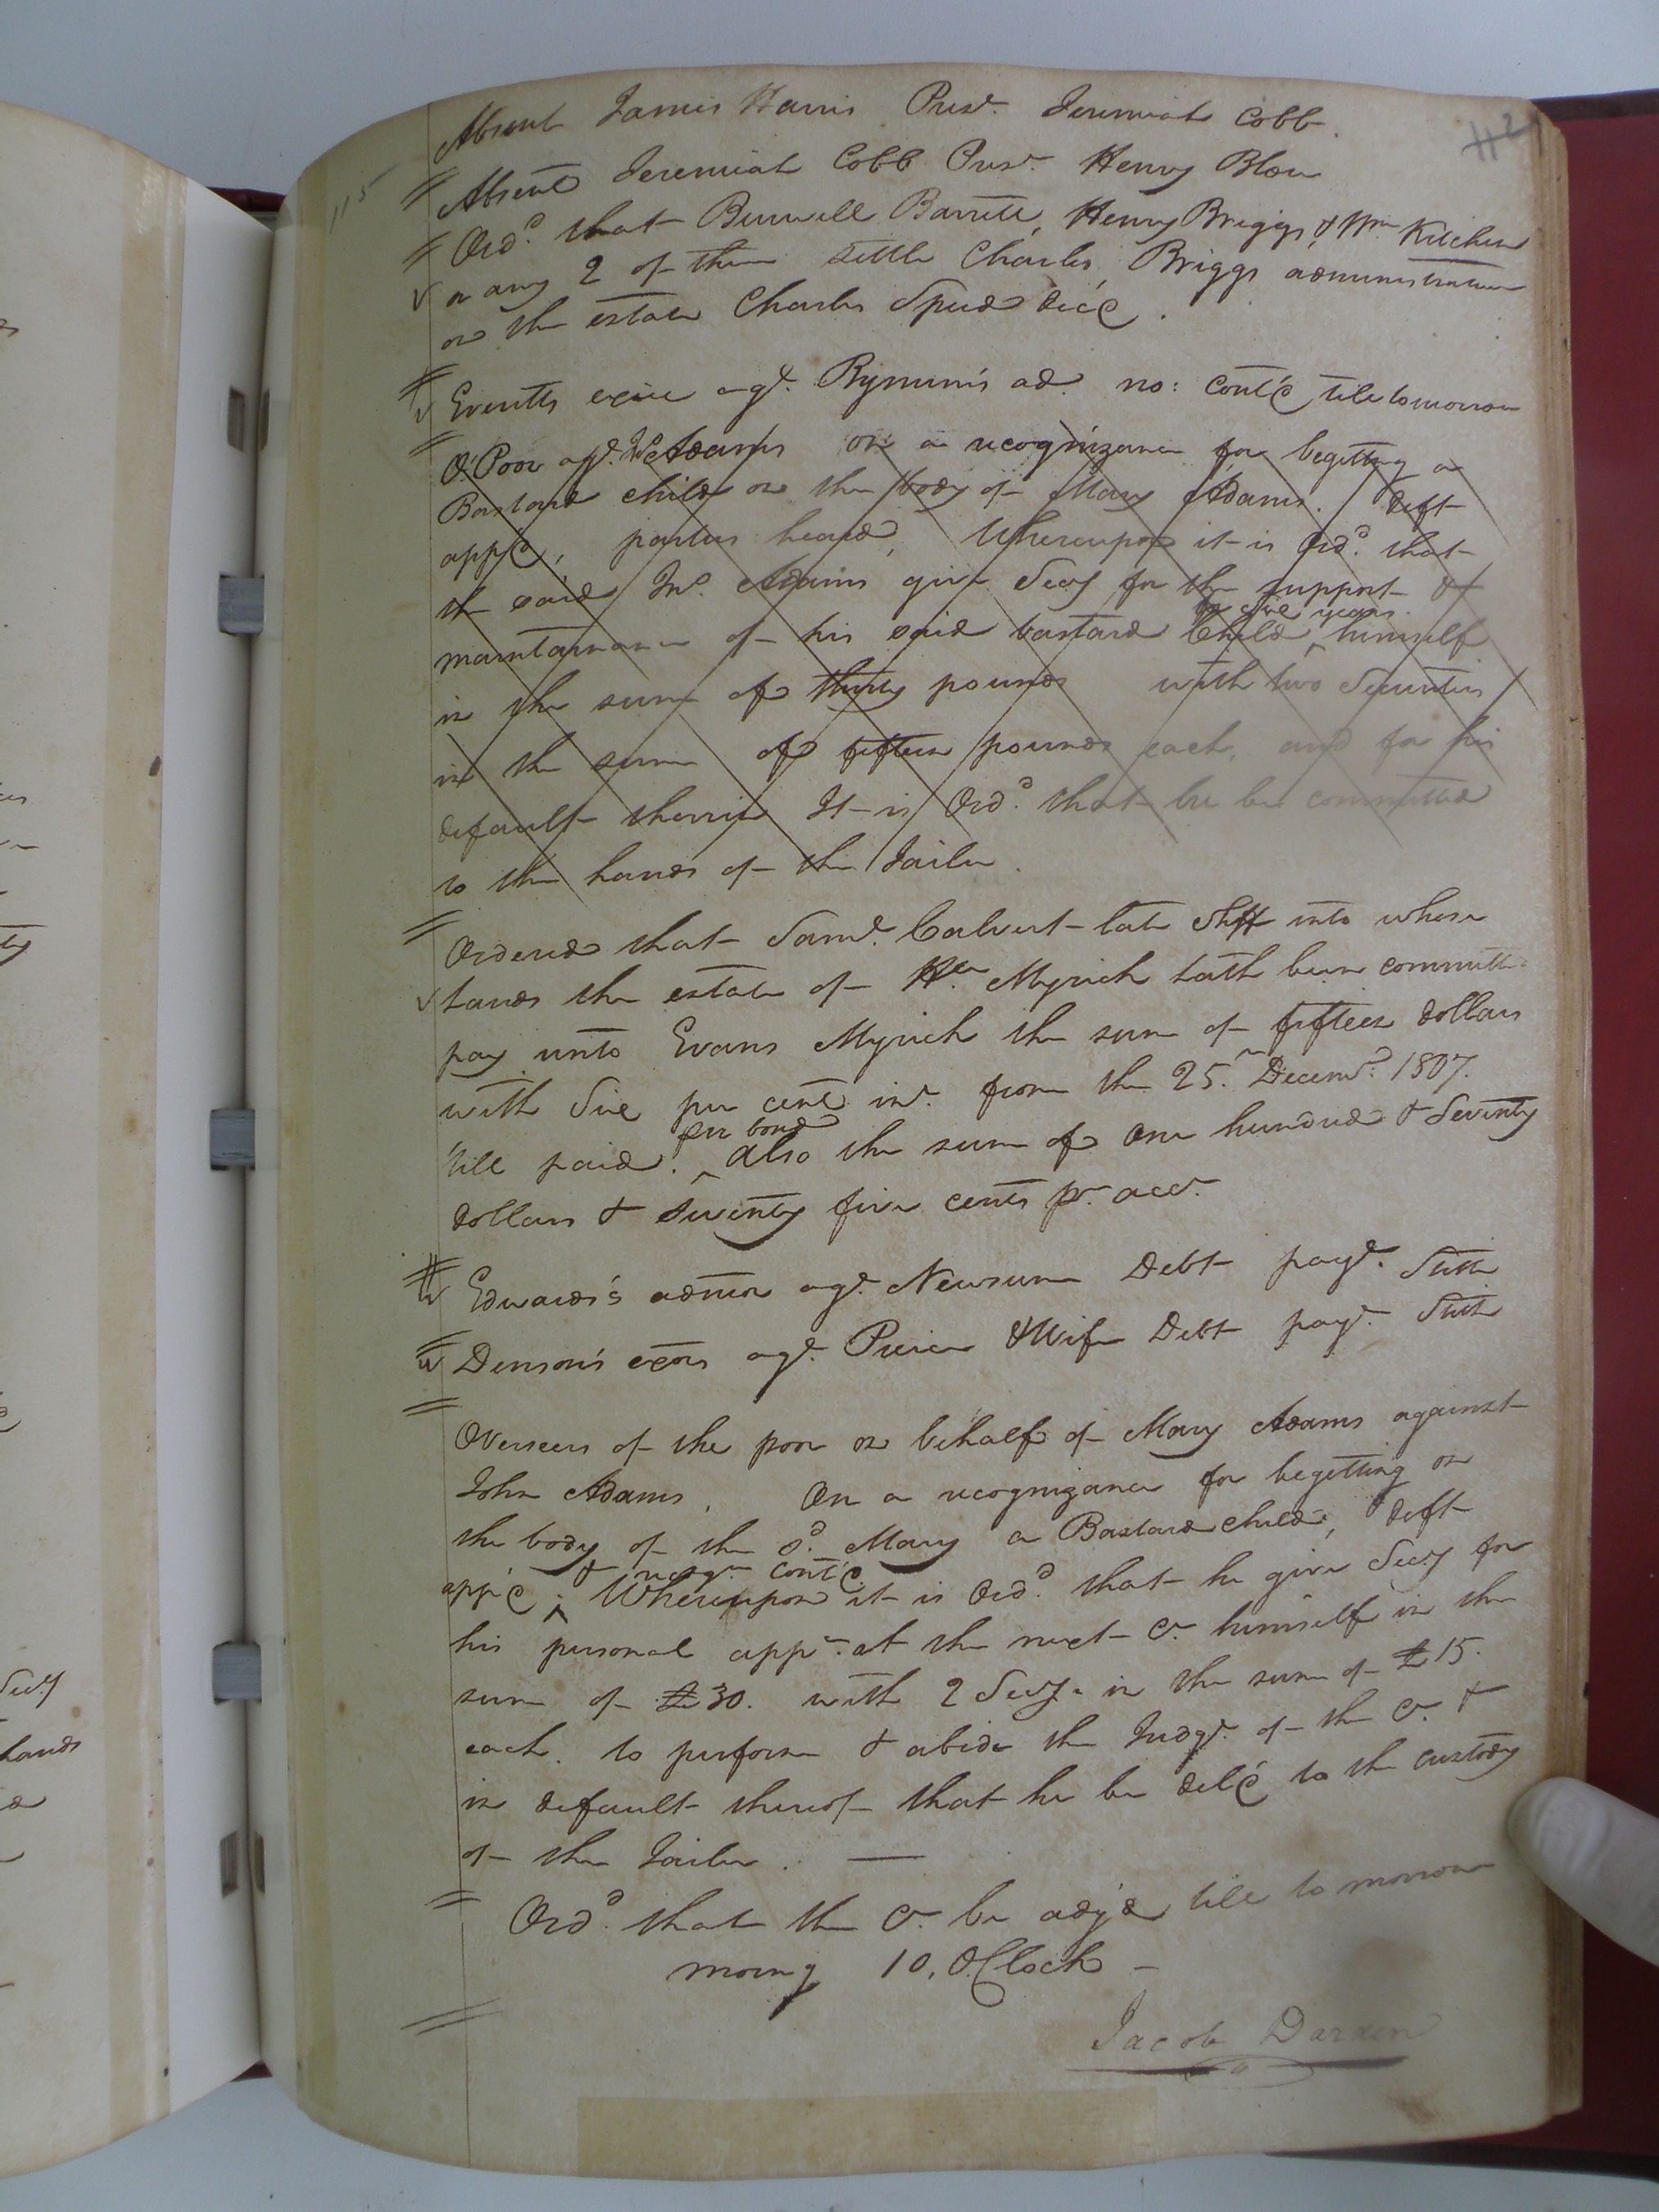 Absent James Harris Prest. Jeremiah Cobb.
112
115
Absent Jeremiah Cobb Prest. Henry Blow
Ord. that Burwell Barrett, Henry Briggs, & Wm Kitchen
or any 2 of them settle Charles Briggs administration
on the estate Charles Speed dec'd.
Everitts exix agt. Bynum's ad. no: cont'd till tomorrow
O. Poor agt. Jno Adams on a recognizance for begetting a
Bastard child on the body of Mary Adams. deft
app'd, parties heard, Whereupon it is Ord. that
the said Jno. Adams give Secy for the support &
for five years
maintainance of his said bastard Child himself
in the sum of thirty pounds with two Securities
in the sum of fifteen pounds each, and for his
default therein It is Ord. that he be committed
to the hands of the Jailer.
Ordered that Saml. Calvert late Shff into whose
hands the estate of Myrick hath been committed
pay unto Evans Myrick the sum of fifteen dollars
with Six per cent int. from the 25. Decemr. 1807.
per bond
till paid. also the sum of One hundred & Seventy
dollars & Seventy five cents pr. acct.
Edwards's admor agt. Newsum Debt payt. Stith
Denson's exors agt. & Wife Debt payt. Stith
Overseers of the poor on behalf of Mary Adams against
John Adams. On a recognizance for begetting on
the body of the sd. Mary a Bastard child, deft
& cont'd
app'd; Whereupon it is Ord. that he give Secy for
his personal appe. at the next Ct. himself in the
sum of £30. with 2 Secys. in the sum of £15.
each. to perform & abide the Judgt. of the Ct. &
in default thereof that he be del'd to the custody
of the Jailer.
Ord. that the Ct. be adj'd till to morrow
morng 10, O Clock
Jacob Darden